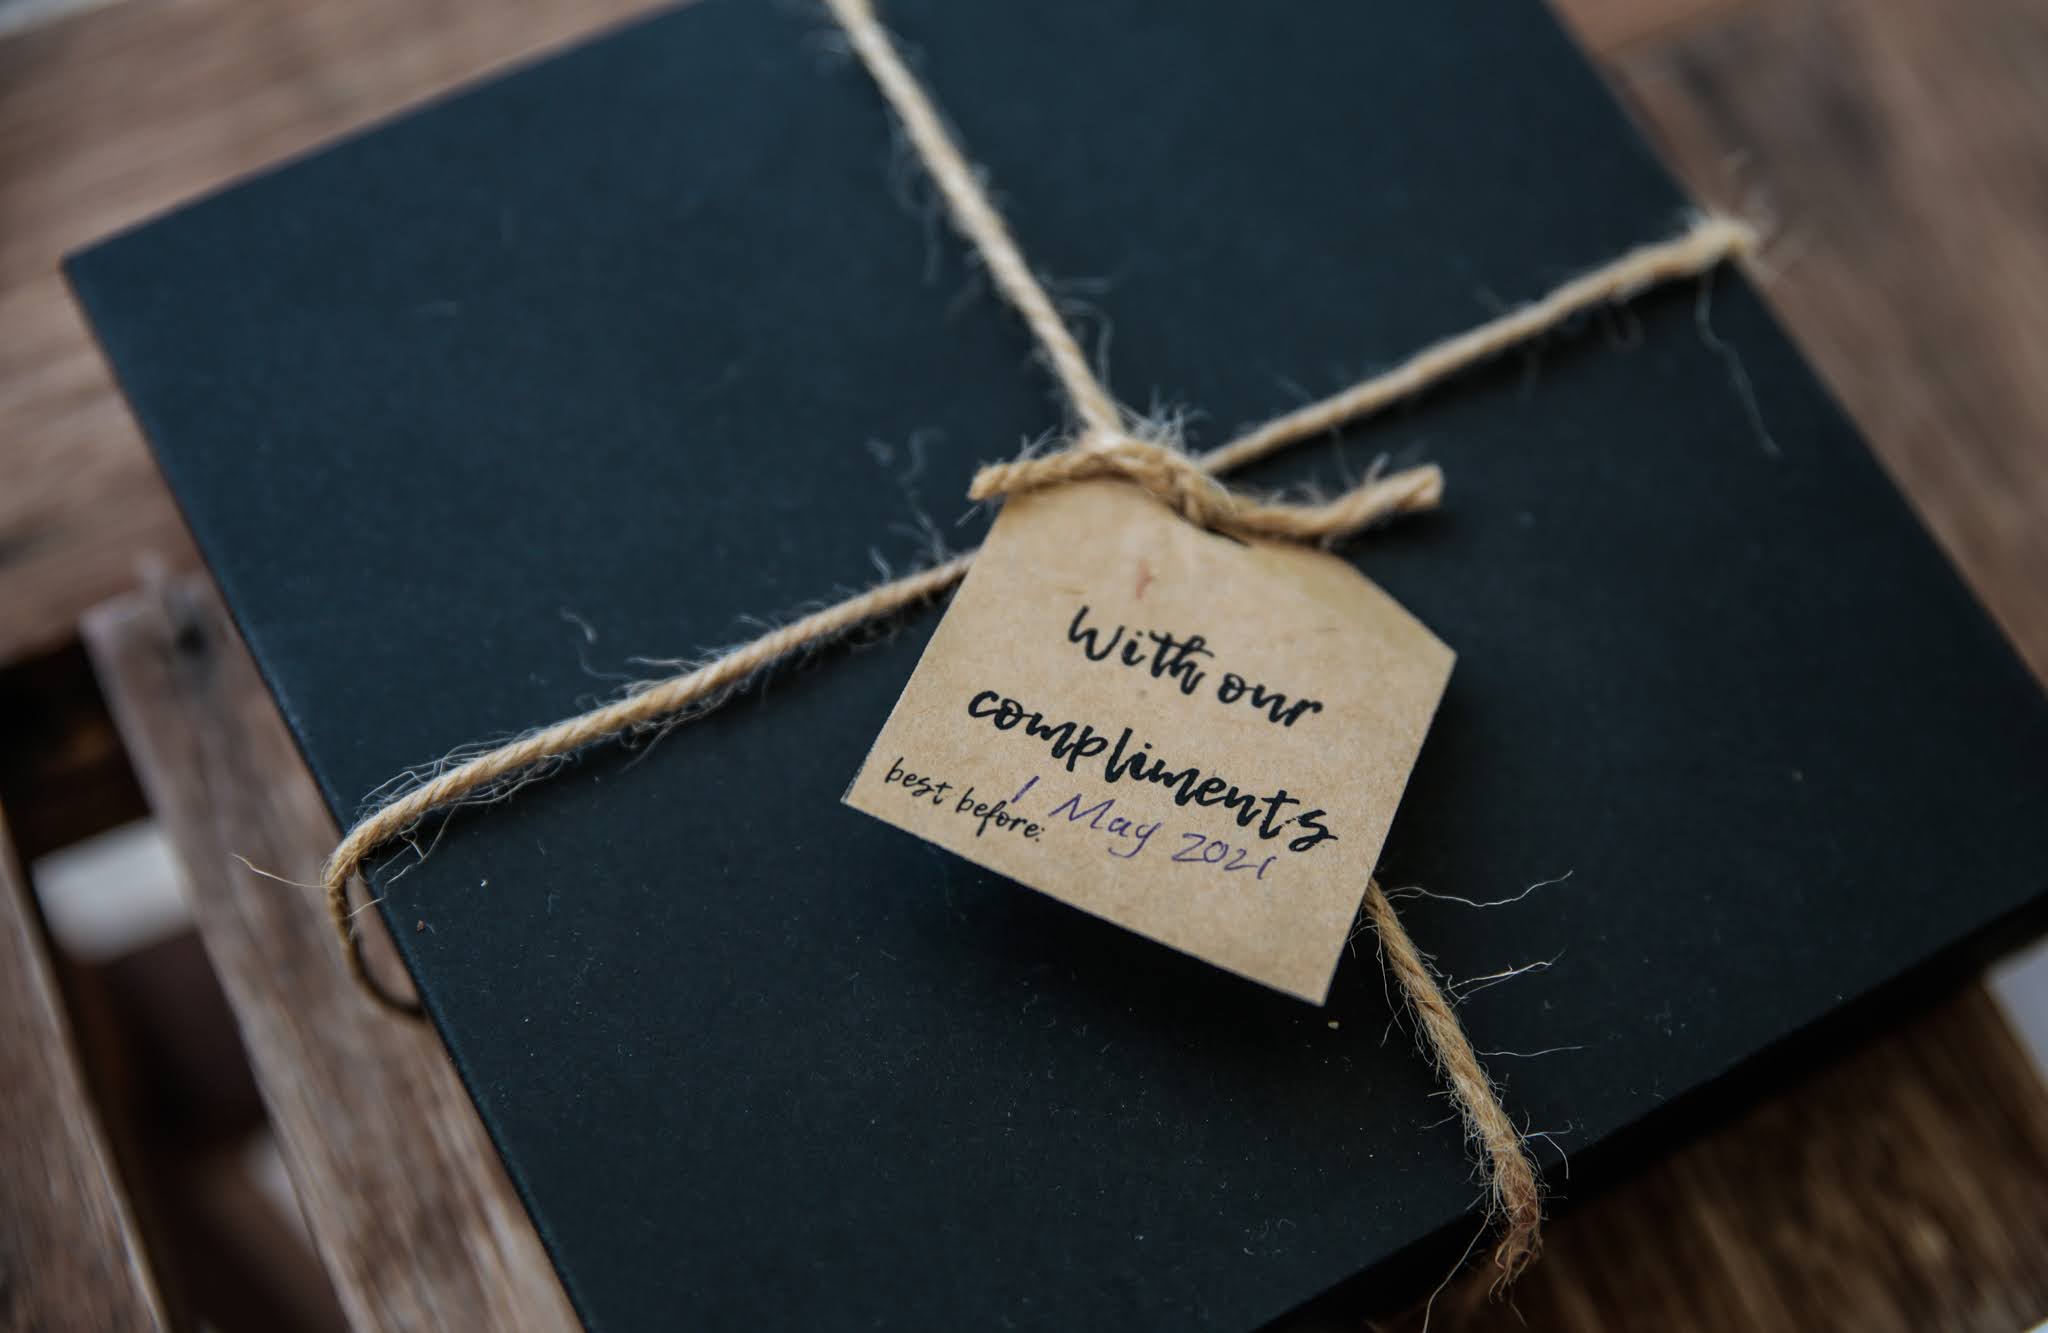 With our
compliments
best before: 1 May 2021